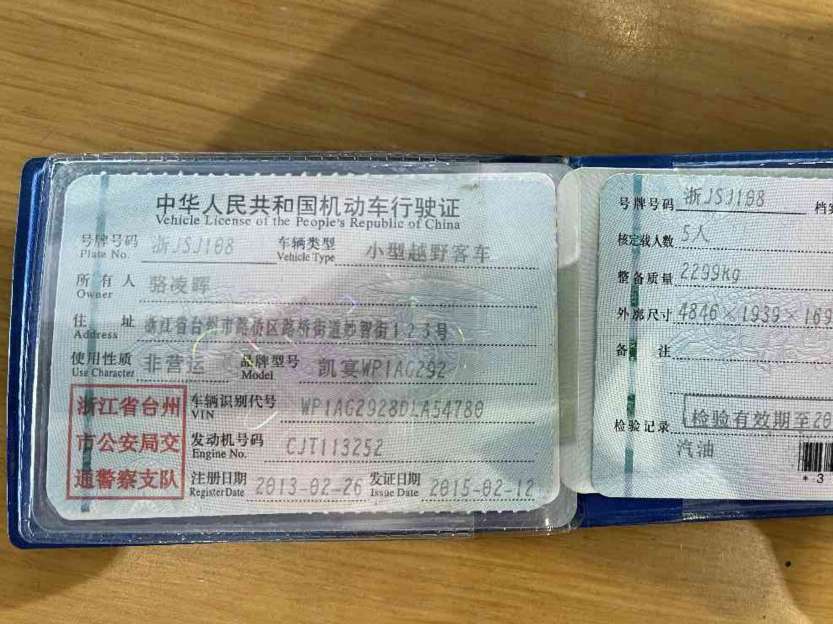 中华人民共和国机动车行驶证
Vehicle License of the People's Republic of China
号牌号码 浙JSJ108 车辆类型 小型越野客车
Plate No. Vehicle Type
所有人 骆凌晖
Owner
住址 浙江省台州市路桥区路桥街道妙智街123号
Address
使用性质 非营运 品牌型号 凯宴WP1AG292
Use Character Model
浙江省台州
市公安局交
通警察支队
车辆识别代号 WP1AG2928DLA54780
VIN
发动机号码 CJT113252
Engine No.
注册日期 2013-02-26 发证日期 2015-02-12
Register Date Issue Date
号牌号码 浙JSJ108
核定载人数 5人
整备质量 2299kg
外廓尺寸 4846×1939×169
备注
检验记录 检验有效期至20
汽油
*3